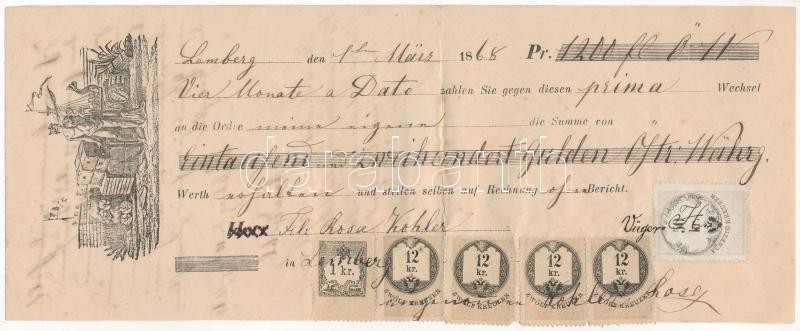 Lemberg den 1ten März 1868 Pr. 1200 fl Ö W
Vier Monate a Dato zahlen Sie gegen diesen prima Wechsel
an die Ordre meine eigene die Summe von
Eintausend zweihundert Gulden Östr. Währg.
Werth erhalten und stellen selben auf Rechnung ohne Bericht.
Rosa Kohler
in Lemberg
1 kr.
12 kr.
ZWÖLF KREUZER
12 kr.
ZWÖLF KREUZER
12 kr.
ZWÖLF KREUZER
12 kr.
ZWÖLF KREUZER
darabanth